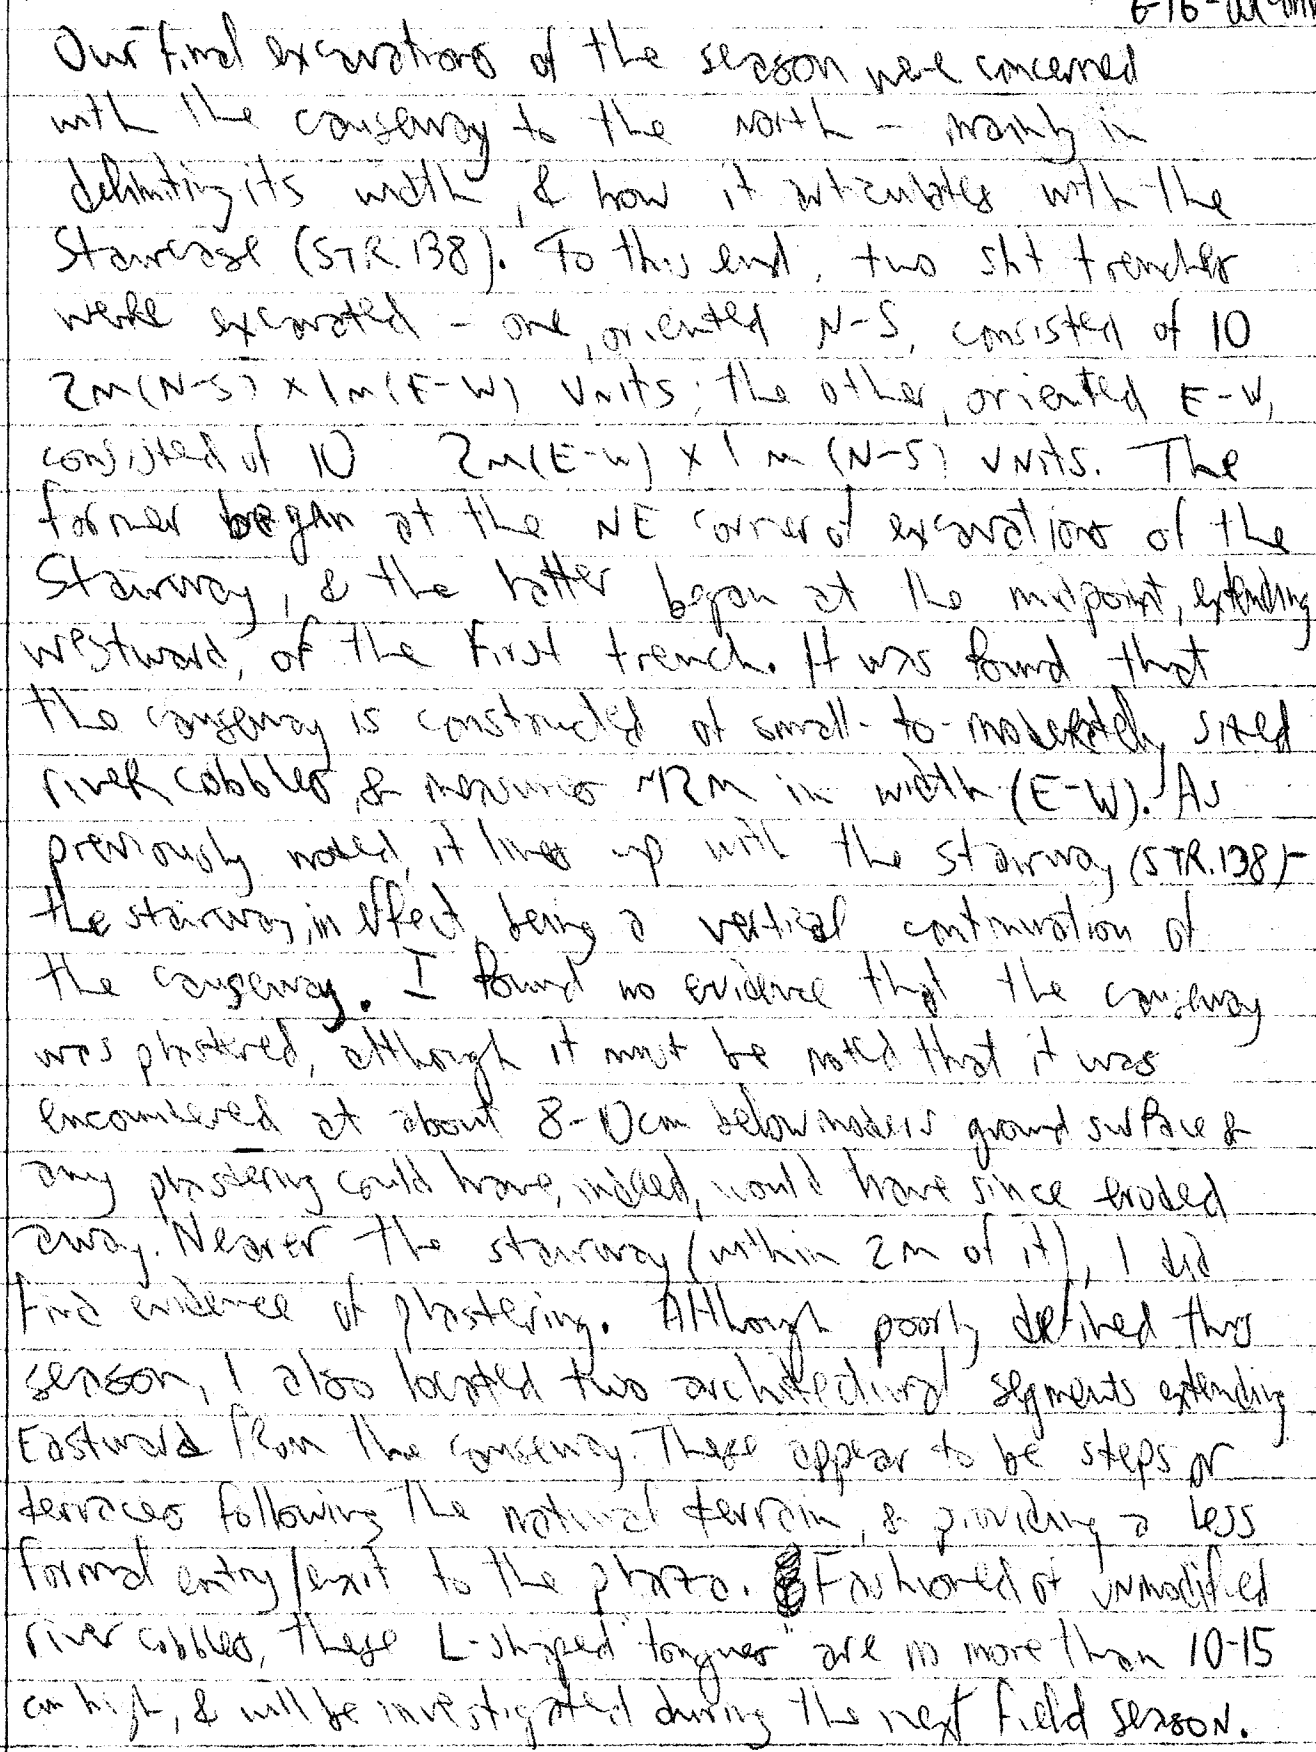 Our final excavations of the season were concerned
with the causeway to the north - mainly in
delimiting its width, & how it articulates with the
Staircase (STR. 138). To this end, two slit trenches
were excavated - one, oriented N-S, consisted of 10
2m(N-S) x 1m(E-W) units; the other, oriented E-W,
consisted of 10 2m(E-W) x 1m (N-S) units. The
former began at the NE corner of excavations of the
Stairway, & the latter began at the midpoint, extending
westward, of the first trench. It was found that
the causeway is constructed of small-to-moderately sized
river cobbles, & measures ~12m in width (E-W). As
previously noted, it lines up with the stairway (STR. 138) -
the stairway, in effect, being a vertical continuation of
the causeway. I found no evidence that the causeway
was plastered, although it must be noted that it was
encountered at about 8-10cm below modern ground surface &
any plastering could have, indeed, would have since eroded
away. Nearer the stairway (within 2m of it), I did
find evidence of plastering. Although poorly defined this
season, I also located two architectural segments extending
Eastward from the causeway. These appear to be steps or
terraces following the natural terrain, & providing a less
formal entry/exit to the plaza. Fashioned of unmodified
river cobbles, these L-shaped "tongues" are no more than 10-15
cm high, & will be investigated during the next field season.